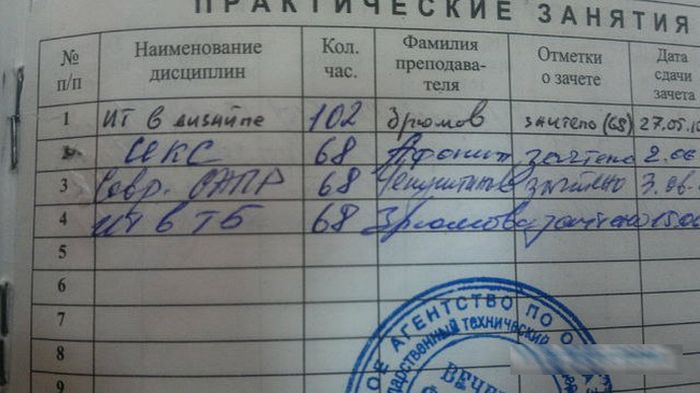 ПРАКТИЧЕСКИЕ ЗАНЯТИЯ
№ п/п Наименование дисциплин Кол. час. Фамилия преподава-теля Отметки о зачете Дата сдачи зачета
1 ИТ в дизайне 102 Зрюмов зачтено (68) 27.05.1
СИКС 68 Афонин зачтено 2.06
3 Совр. САПР 68 зачтено 3.06.
4 ИТ в ТБ 68 Зрюмова зачтено 15.0
5
6
7
8
9
ОЕ АГЕНТСТВО ПО О
дарственный технический
ВЕЧЕ